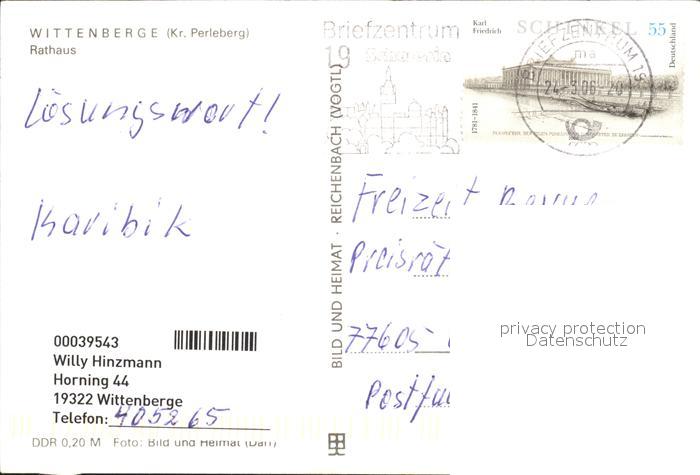 WITTENBERGE (Kr. Perleberg)
Rathaus
Lösungswort!
Karibik
00039543
Willy Hinzmann
Horning 44
19322 Wittenberge
Telefon: 405265
DDR 0,20 M Foto: Bild und Heimat (Darr)
BILD UND HEIMAT · REICHENBACH (VOGTL)
Briefzentrum
19
Karl
Friedrich
SCHINKEL 55
Deutschland
1781-1841
BRIEFZENTRUM 19
ma
24.3.06.-20
Freizeit
Preisrät
77605
Postfa
privacy protection
Datenschutz